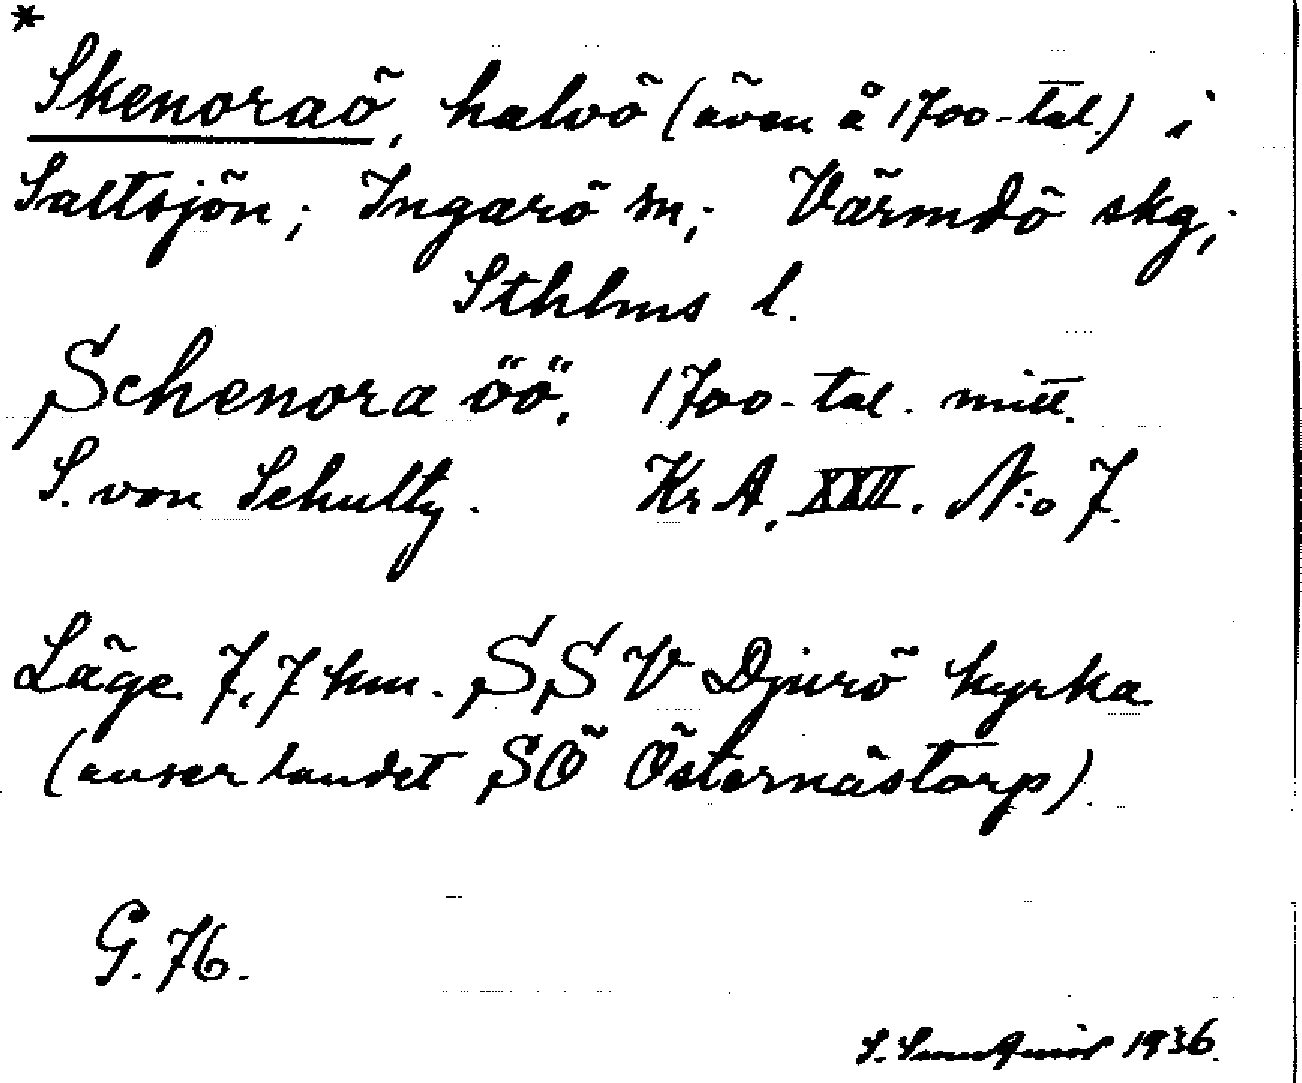 *
Skenoraö, halvö (även å 1700-tal.) i
Saltsjön; Ingarö sn; Värmdö skg;
Sthlms l.
Schenora öö. 1700-tal. mitt.
S. von Schultz. Kr A. XXII. N:o 7.
Läge 7,7 km. SSV Djurö kyrka
(auser landet SÖ Östernästorp).
G. 76.
S. 1936.